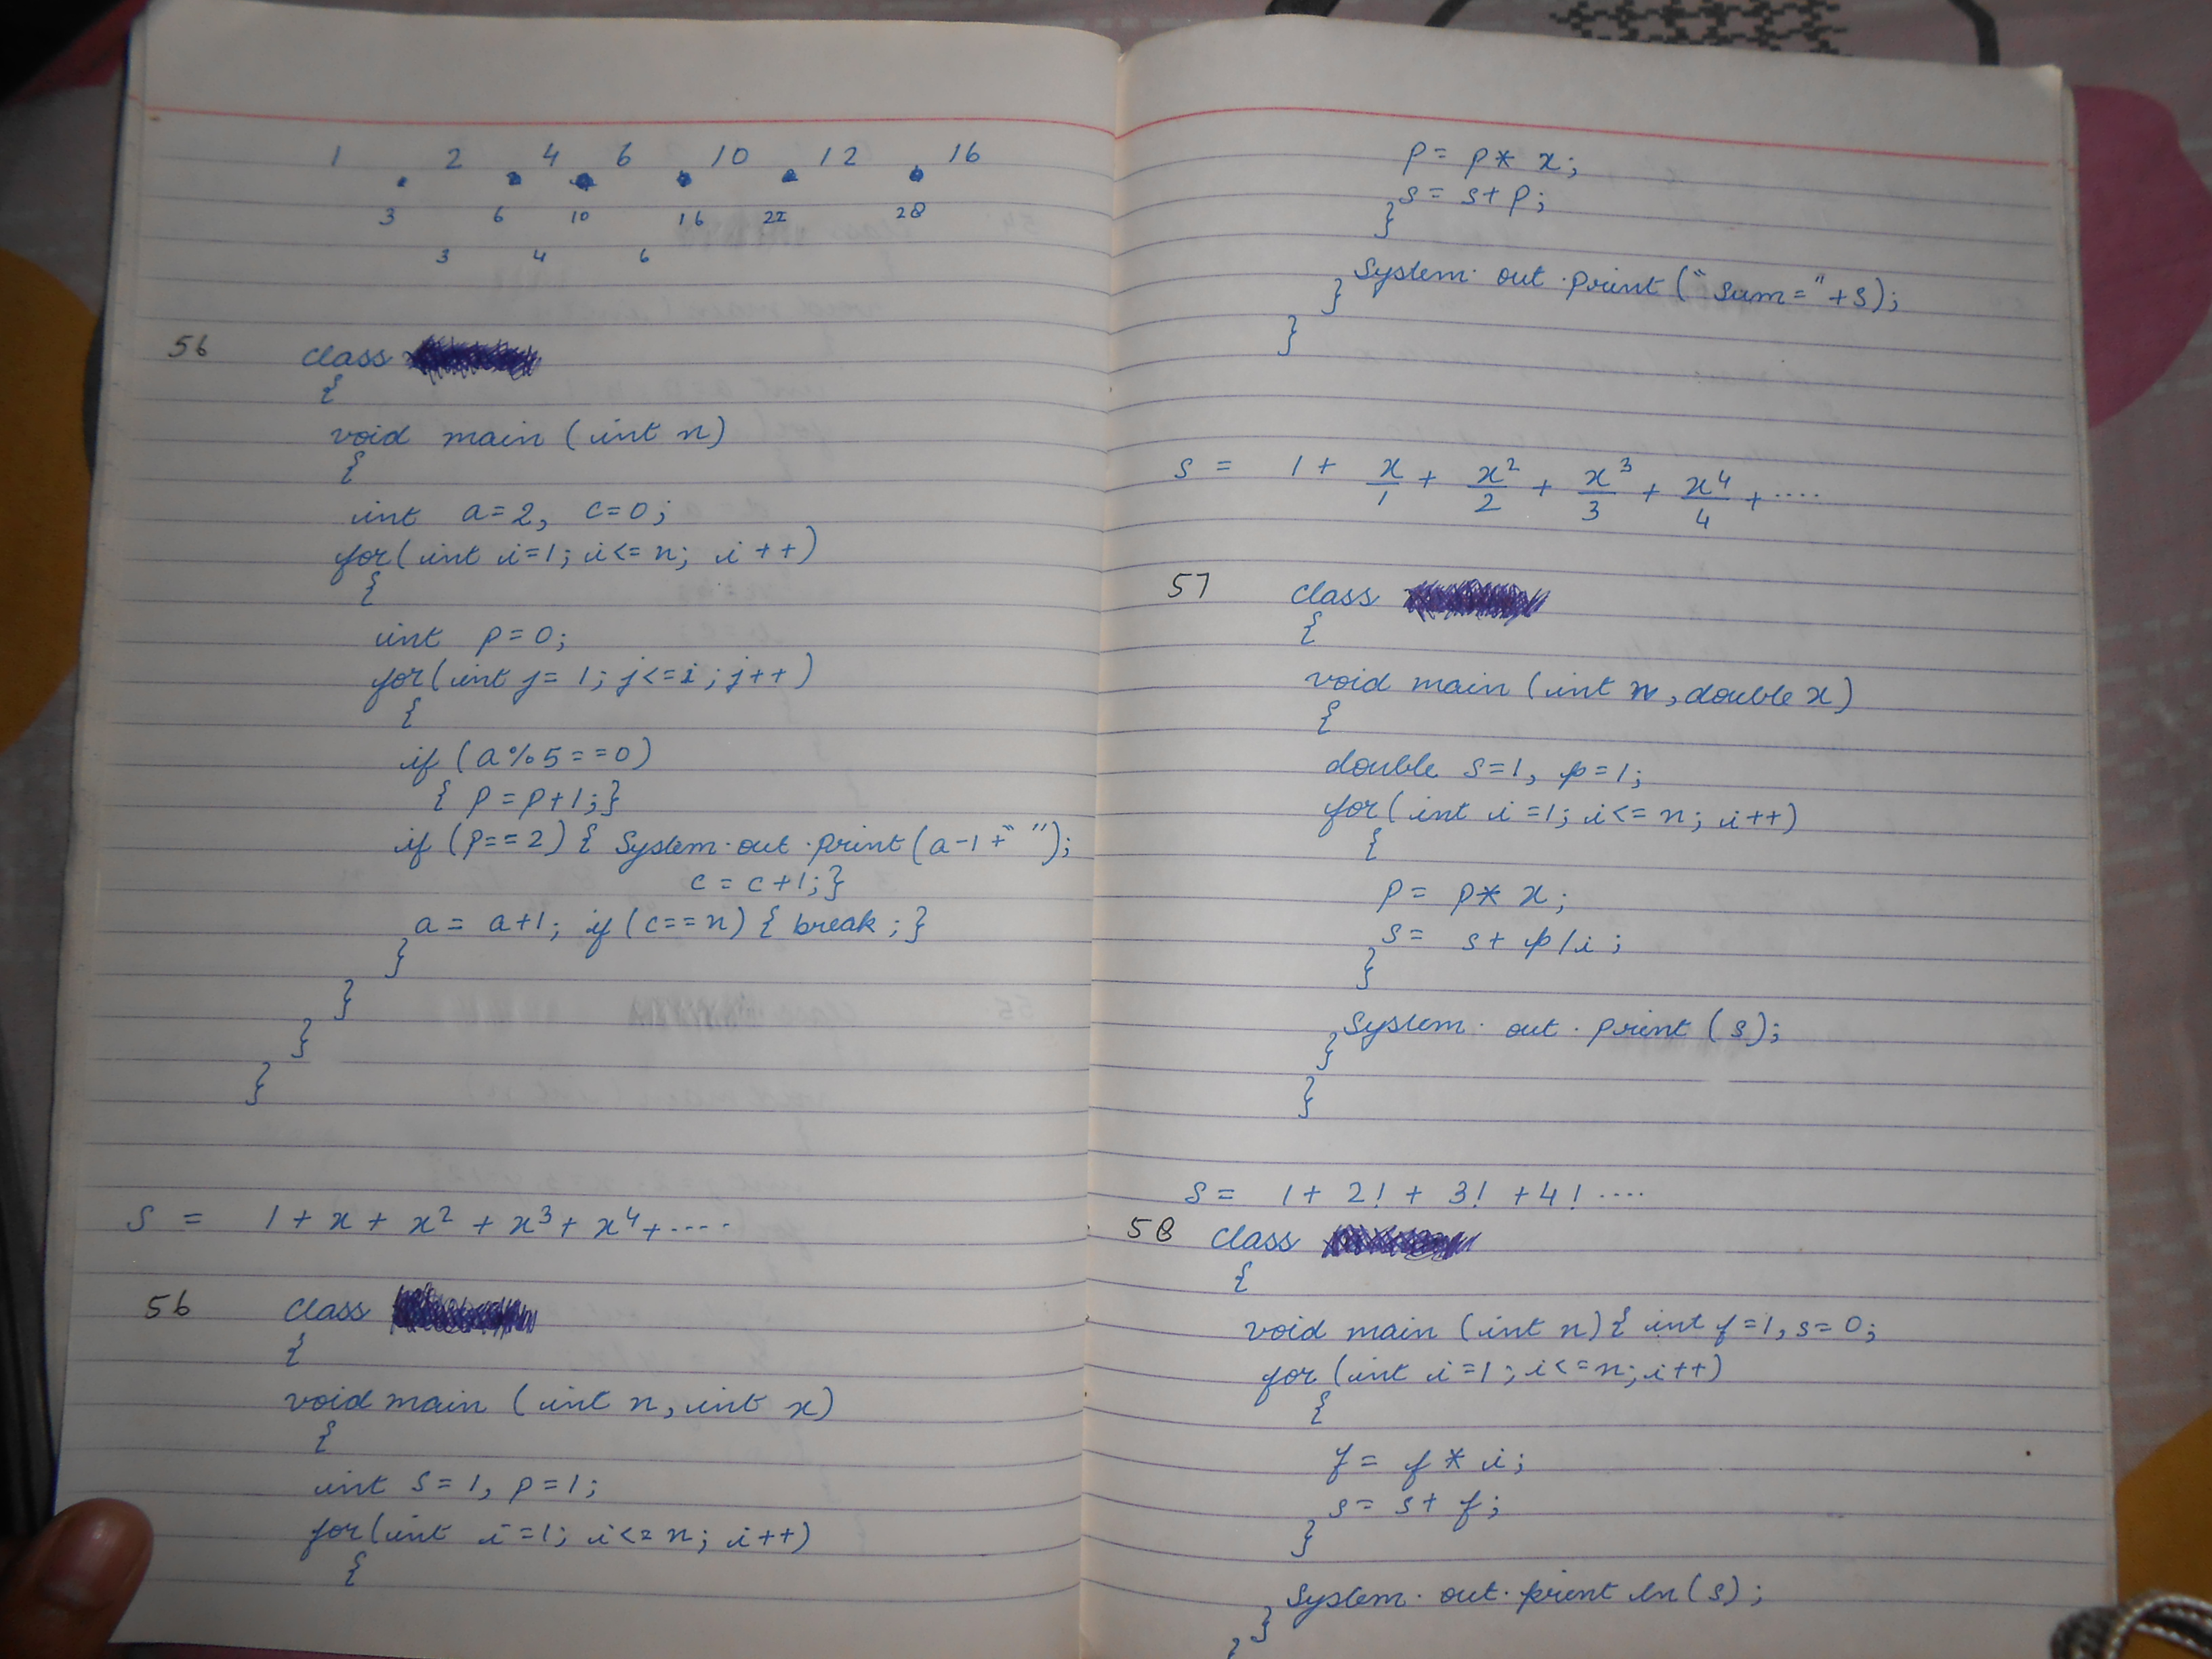 1 2 4 6 10 12 16
3 6 10 16 22 28
3 4 6
56 class
{
void main (int n)
{
int a=2, c=0;
for(int i=1; i<=n; i++)
{
int p=0;
for(int j=1; j<=i; j++)
{
if (a%5==0)
{ p=p+1;}
if (p==2) { System.out.print(a-1+" ");
c=c+1;}
a= a+1; if(c==n) { break;}
}
}
}
}
S = 1+x+x²+x³+x⁴+....
56 class
{
void main (int n, int x)
{
int s=1, p=1;
for(int i=1; i<=n; i++)
{
p= p* x;
s= s+p;
}
System.out.print("sum="+s);
}
}
S = 1+ x/1 + x²/2 + x³/3 + x⁴/4 +....
57 class
{
void main (int n, double x)
{
double s=1, p=1;
for(int i=1; i<=n; i++)
{
p= p* x;
s= s+ p/i;
}
System.out.print(s);
}
}
S= 1+ 2! + 3! +4!....
58 class
{
void main (int n){ int f=1, s=0;
for (int i=1; i<=n; i++)
{
f= f * i;
s= s+ f;
}
System.out.println(s);
}
}